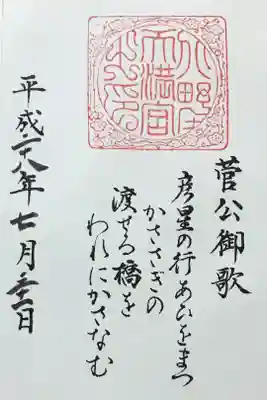 北野
天満宮
菅公御歌
彦星の行あひをまつ
かささぎの
渡せる橋を
われにかさなむ
平成二十八年七月